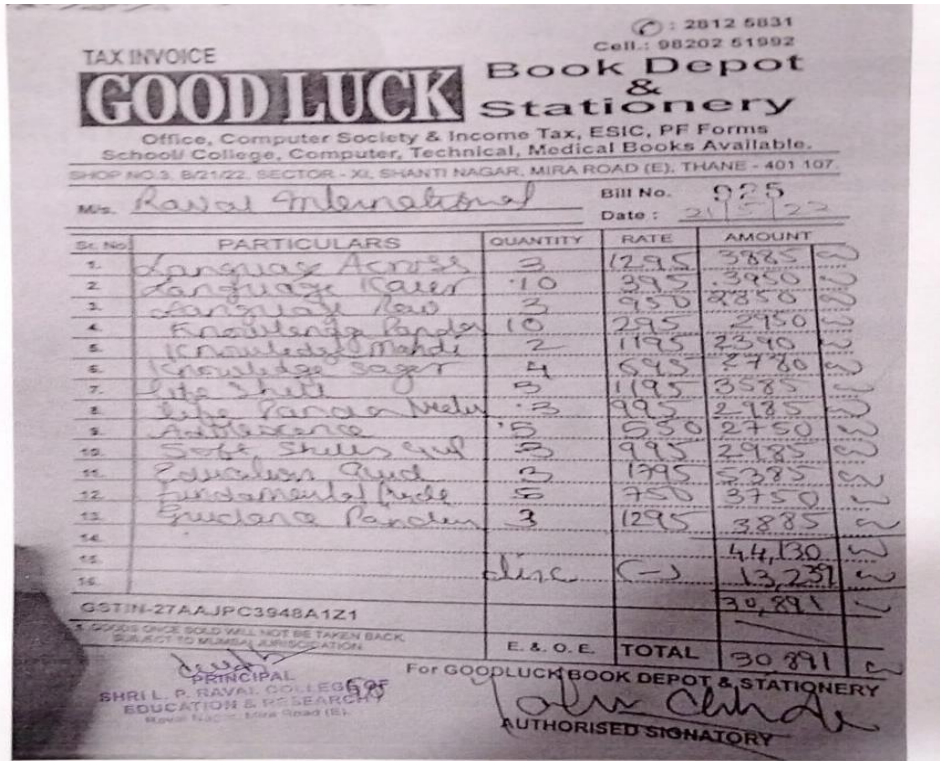 : 2812 5831
Cell.: 98202 51992
TAX INVOICE
GOOD LUCK Book Depot
&
Stationery
Office, Computer Society & Income Tax, ESIC, PF Forms
School/ College, Computer, Technical, Medical Books Available.
SHOP NO.3, B/21/22, SECTOR - XI, SHANTI NAGAR, MIRA ROAD (E), THANE - 401 107.
M/s. Raval International Bill No. 925
Date : 21/5/22
Sr. No. PARTICULARS QUANTITY RATE AMOUNT
1. Language Across 3 1295 3885
2. Language 10 395 3950
3. Language 3 950 2850
4. Knowledge 10 295 2950
5. Knowledge 2 1195 2390
6. Knowledge Sager 4 695 2780
7. Life Skill 3 1195 3585
8. Life 3 995 2985
9. 5 550 2750
10. Soft Skills 3 995 2985
11. Education 3 1795 5385
12. Fundamental 5 750 3750
13. Guidance 3 1295 3885
14. 44,130
15. disc (-) 13,239
16. 30,891
GSTIN-27AAJPC3948A1Z1
* GOODS ONCE SOLD WILL NOT BE TAKEN BACK
SUBJECT TO MUMBAI JURISDICATION
E. & O. E. TOTAL 30891
PRINCIPAL
SHRI L. P. RAVAL COLLEGE OF
EDUCATION & RESEARCH
Raval Nagar, Mira Road (E).
For GOODLUCK BOOK DEPOT & STATIONERY
AUTHORISED SIGNATORY